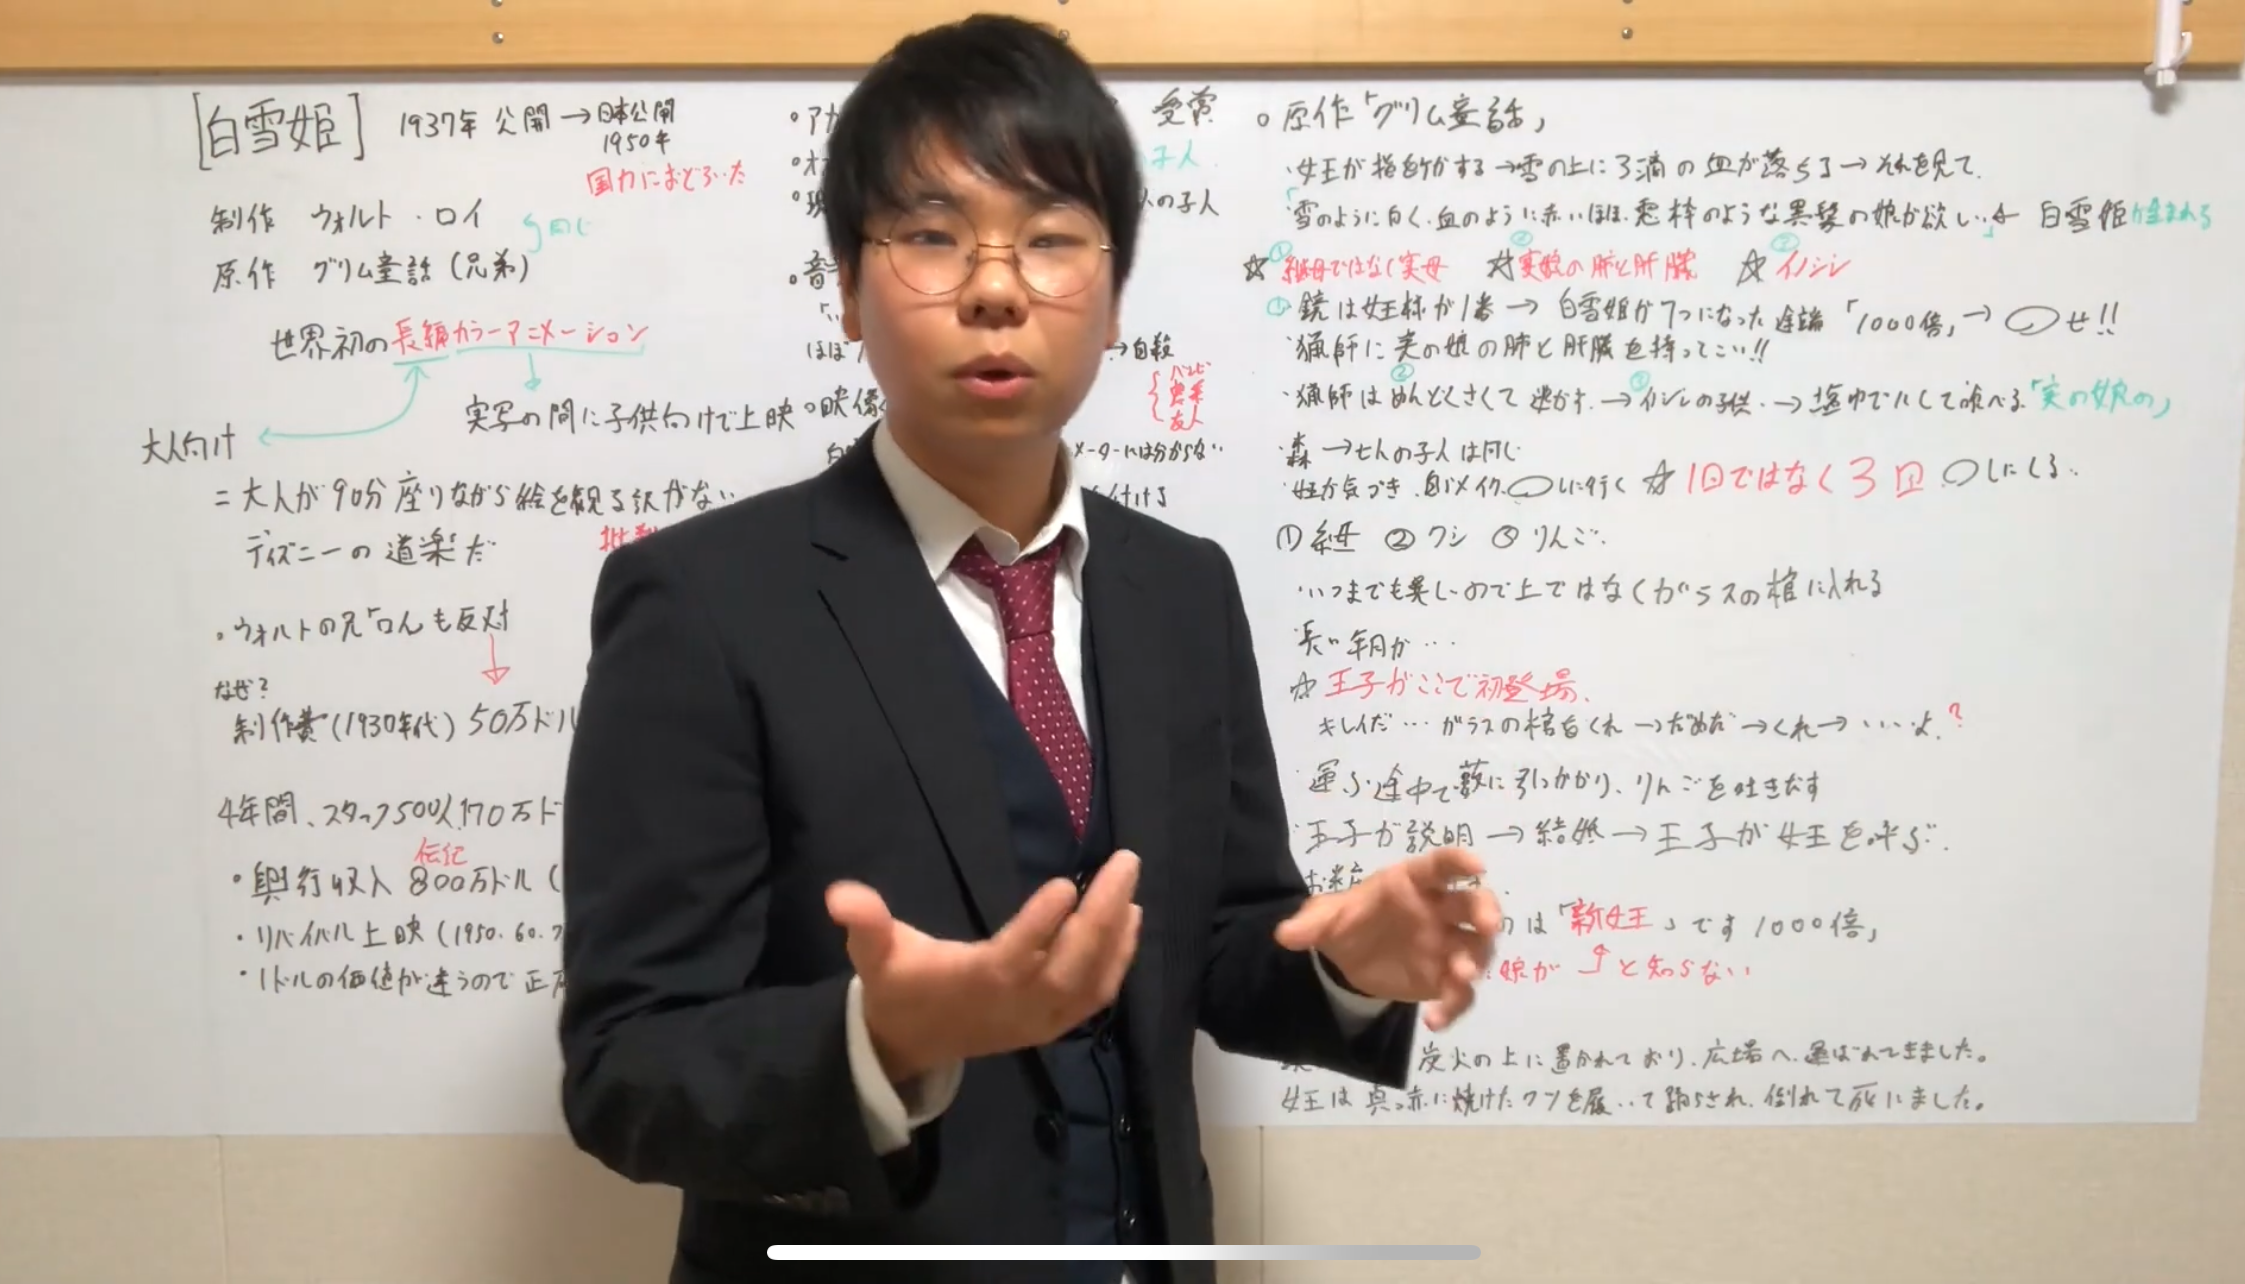 [白雪姫] 1937年 公開→日本公開
1950年
国力におどろいた
制作 ウォルト・ロイ
同じ
原作 グリム童話(兄弟)
世界初の長編カラーアニメーション
実写の間に子供向けで上映
大人向け
=大人が90分座りながら絵を観る訳がない
ディズニーの道楽だ
・ウォルトの兄「ロイ」も反対
なぜ?
制作費(1930年代) 50万ドル
4年間、スタッフ500人 170万ド
伝記
・興行収入 800万ドル(
・リバイバル上映(1950.60.7
・1ドルの価値が違うので正
受賞
の子人
ほぼ
→自殺
バンビ
友人
・映像
メーターには分からない
付ける
○原作「グリム童話」
・女王が指をケガする→雪の上に3滴の血が落ちる→それを見て、
「雪のように白く、血のように赤いほほ、窓枠のような黒髪の娘が欲しい」← 白雪姫が生まれる
☆①継母ではなく実母 ☆②実娘の肺と肝臓 ☆③イノシシ
①鏡は女王様が1番→白雪姫が7つになった途端「1000倍」→◯せ!!
猟師に実の娘の肺と肝臓を持ってこい!!
・猟師は②めんどくさくて逃がす。→③イノシシの子供.→塩ゆでにして食べる「実の娘の」
・森→七人の子人は同じ
・女王が気づき、自らメイク、◯しに行く ☆1回ではなく3回◯しにくる。
①紐 ②クシ ③りんご.
・いつまでも美しいので土ではなくガラスの棺に入れる
長い年月が…
☆王子がここで初登場、
キレイだ…ガラスの棺をくれ→だめだ→くれ→・・・いいよ.?
・運ぶ途中で藪に引っかかり、りんごを吐きだす
・王子が説明→結婚→王子が女王を呼ぶ.
のは「新女王」です1000倍」
娘が と知らない
炭火の上に置かれており、広場へ、運ばれてきました。
女王は真っ赤に焼けたクツを履いて踊らされ、倒れて死にました。